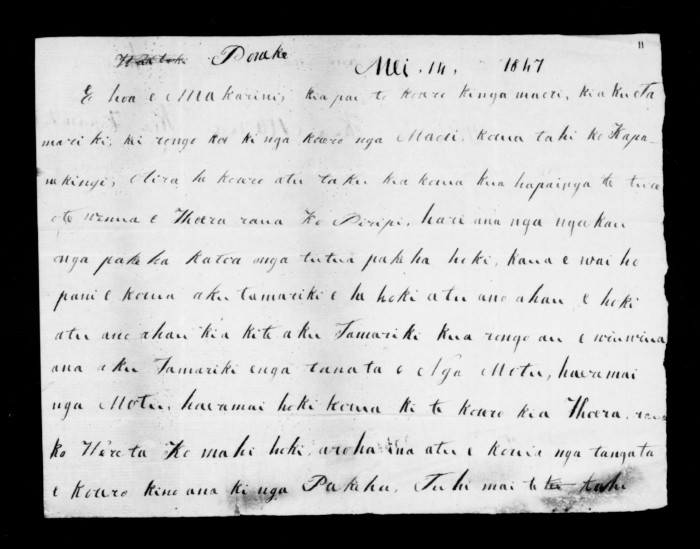 11
Poneke Mei. 14. 1847
E hoa e Makarini, kia pai to korero ki nga maori, ki aku Ta
mariki, ki rongo koe ki nga korero nga Maori, koua tahi ko Kapa-
nakingi, Otira he korero atu taku kia koua kua hapainga te
ote wenua e Iheera raua Ko Piripi, hari ana nga ngakau
onga pakeha katoa onga tutua pakeha hoki, kaua e wai ho
pani e koua aku tamariki e ha hoki atu ano ahau e hoki
atu ano ahau kia kite aku Tamariki kua rongo au e wiuwiua
ana aku Tamariki enga tanata o Nga Motu, haeramai
nga Motu, haeramai hoki koua ki te korero kia Iheera, raua
ko Wereta Ko mahi hoki, aroha ina atu e koua nga tangata
e korero kino ana ki nga Pakeha, Tuhi mai tahi